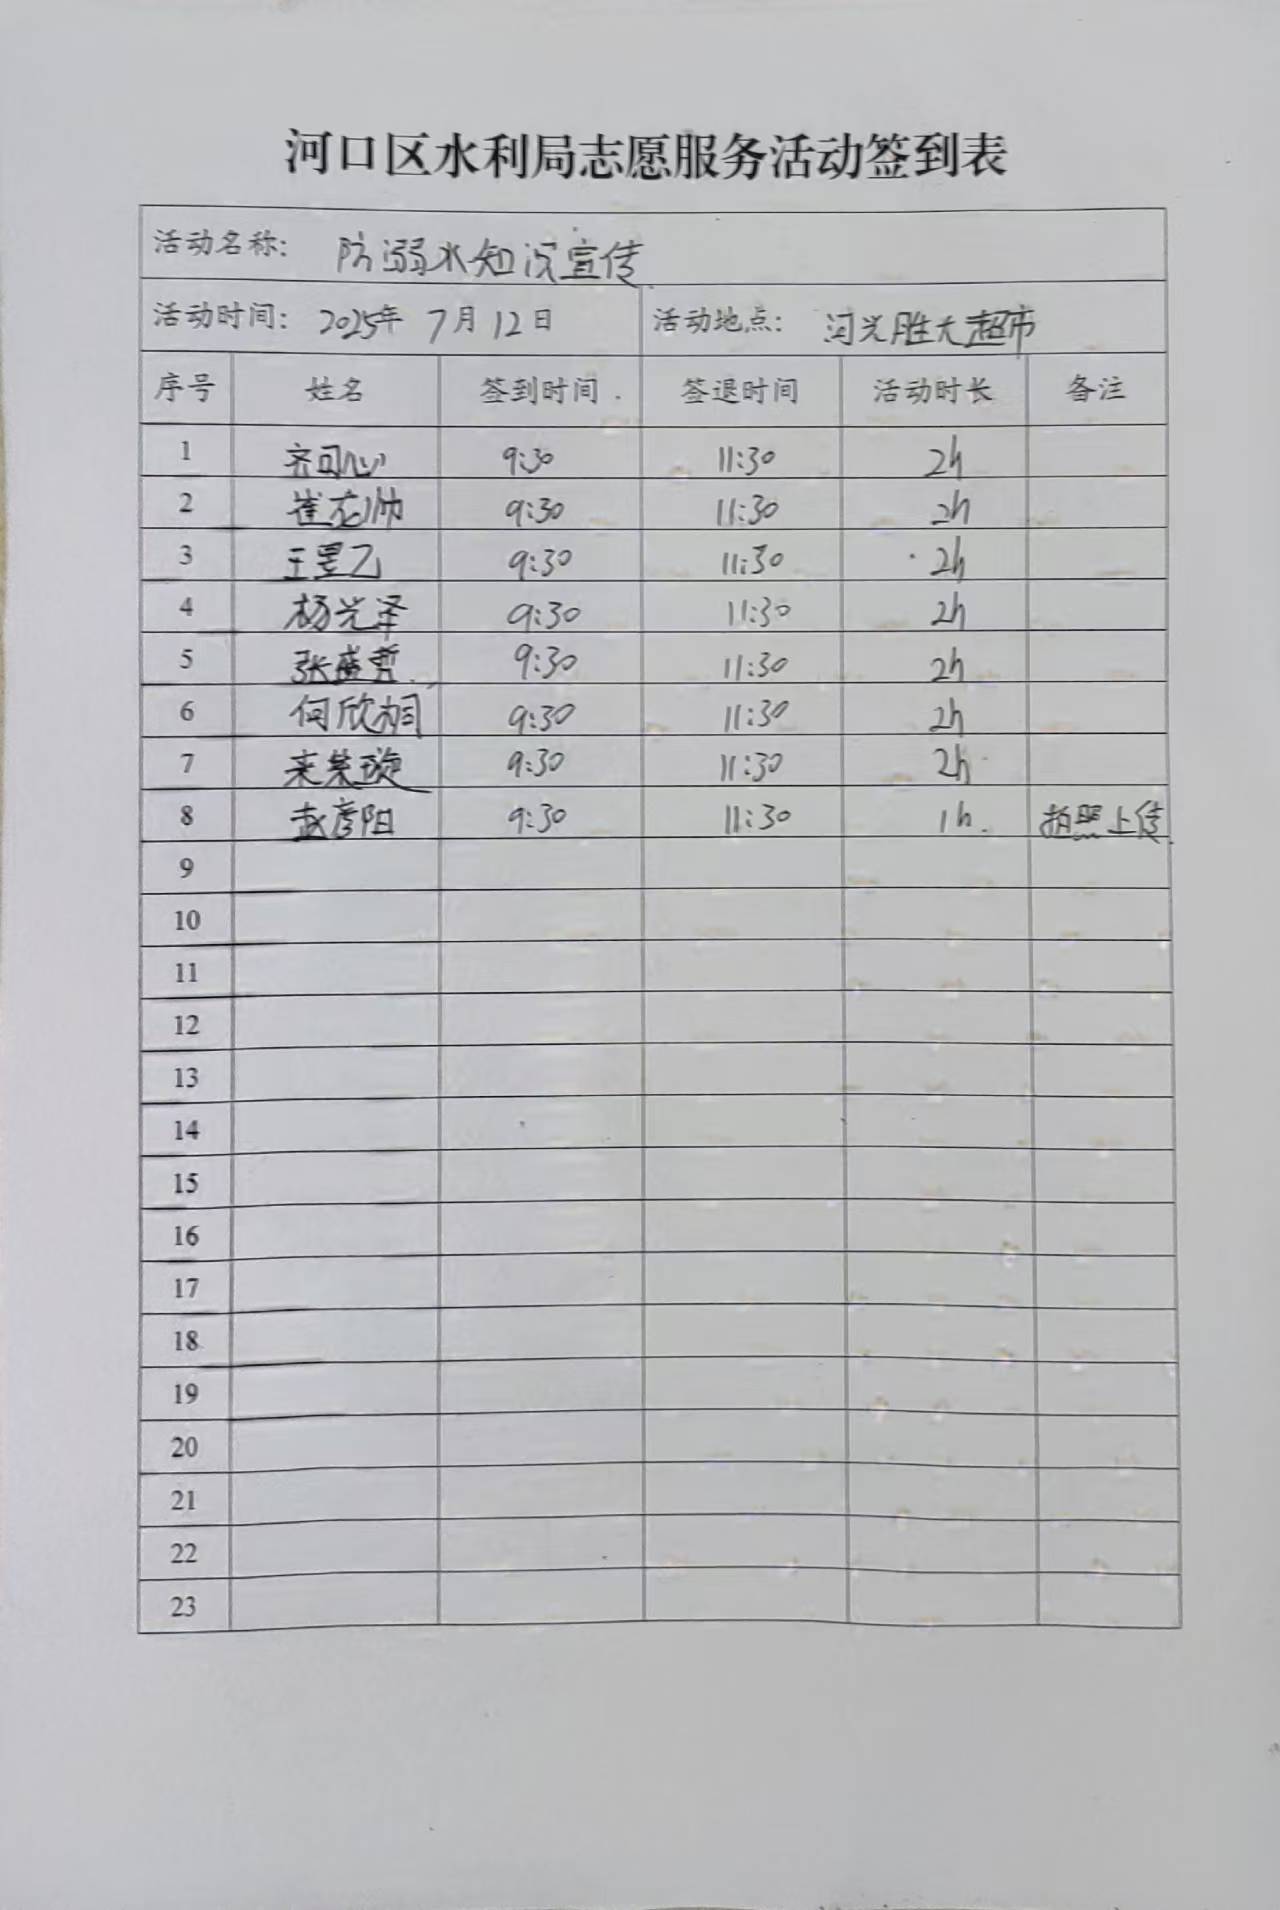 河口区水利局志愿服务活动签到表
活动名称： 防溺水知识宣传
活动时间： 2025年 7月 12日 活动地点： 河兴胜大超市
序号 姓名 签到时间 签退时间 活动时长 备注
1 齐可心 9:30 11:30 2h
2 崔花帅 9:30 11:30 2h
3 王昱乙 9:30 11:30 2h
4 杨兴泽 9:30 11:30 2h
5 张盛哲 9:30 11:30 2h
6 何欣桐 9:30 11:30 2h
7 9:30 11:30 2h
8 赵彦阳 9:30 11:30 1h. 拍照上传
9
10
11
12
13
14
15
16
17
18
19
20
21
22
23